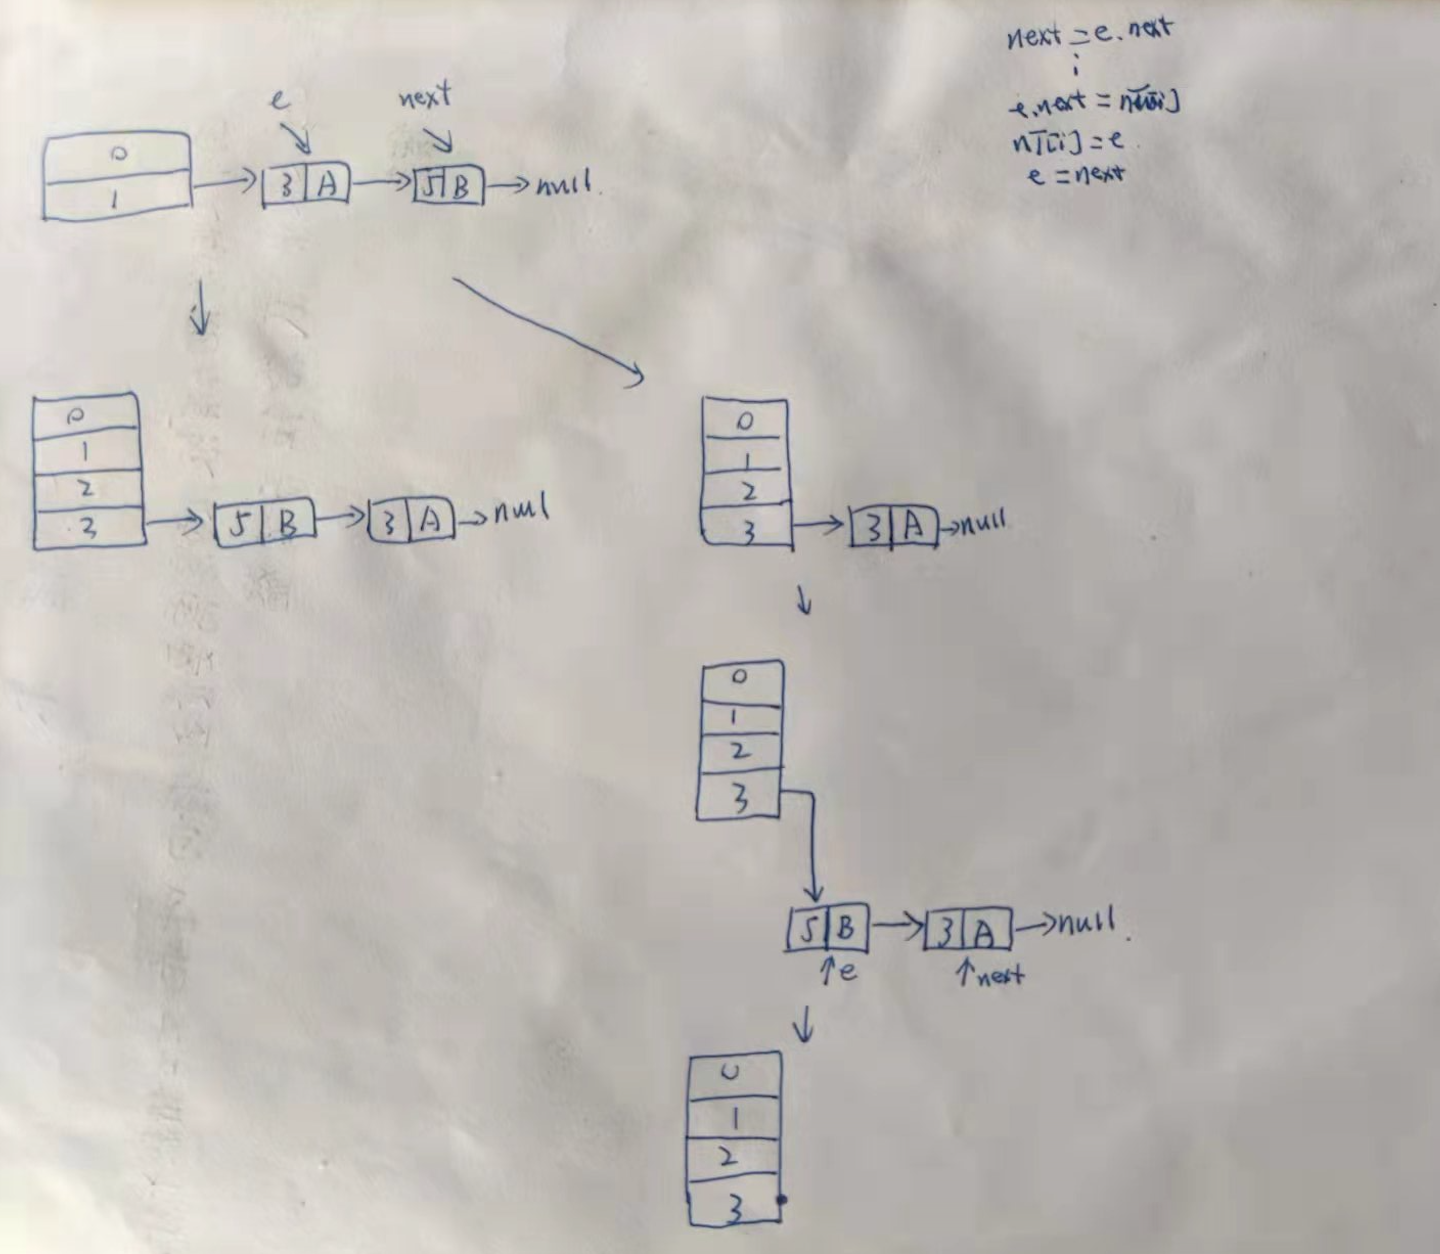 next = e.next
e.next = n[i]
n[i] = e
e = next
e next
0
1 3 A 5 B null
0
1
2
3 5 B 3 A null
0
1
2
3 3 A null
0
1
2
3
5 B 3 A null
e next
0
1
2
3